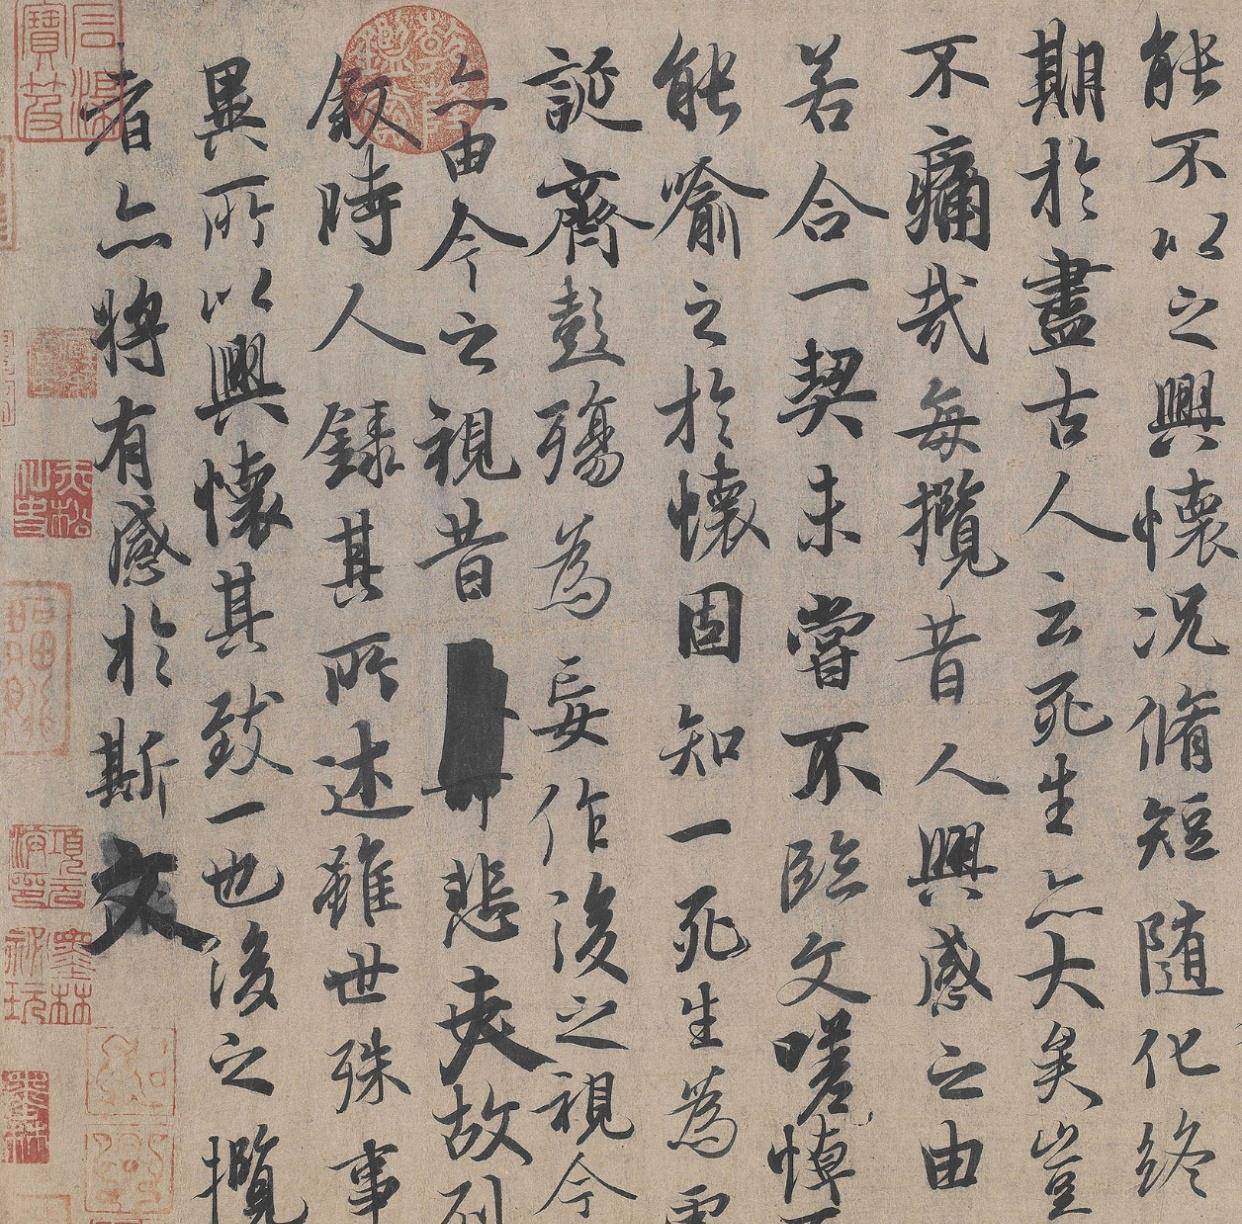 能不以之興懷況脩短隨化終
期於盡古人云死生亦大矣豈
不痛哉每攬昔人興感之由
若合一契未嘗不臨文嗟悼不
能喻之於懷固知一死生為虛
誕齊彭殤為妄作後之視今
亦由今之視昔悲夫故列
敘時人錄其所述雖世殊事
異所以興懷其致一也後之攬
者亦將有感於斯文
墨林祕玩